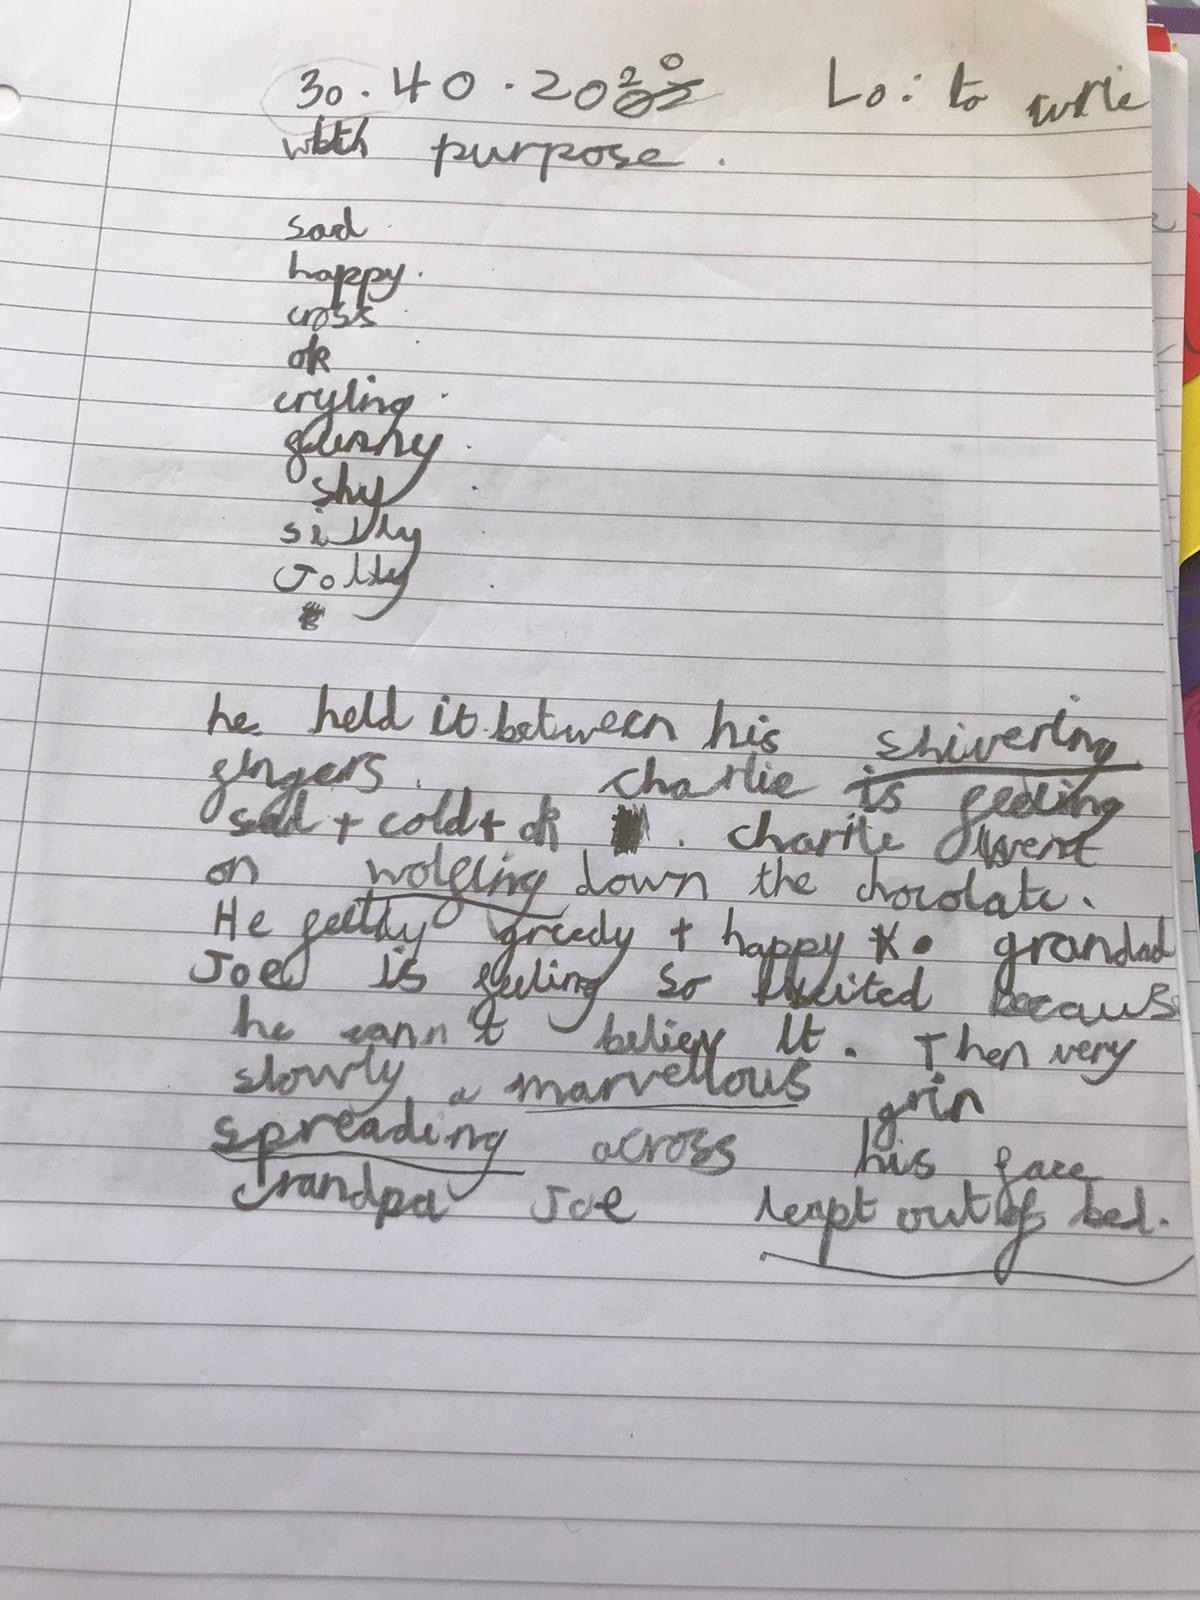 30.40.2020 Lo: to write
with purpose.
sad
happy.
cross
ok
crying
funny
shy
silly
Jolly
he held it between his shivering
fingers. charlie is feeling
sad + cold + ok. charlie went
on wolfing down the chocolate.
He felt greedy + happy. grandad
Joe is feeling so excited because
he cann't believ It. Then very
slowly a marvellous grin
spreading across his face
Grandpa Joe lept out of bed.